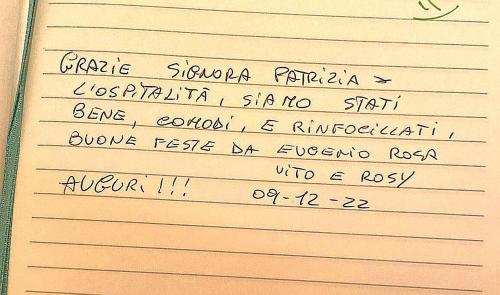 GRAZIE SIGNORA PATRIZIA X
L'OSPITALITÀ, SIAMO STATI
BENE, COMODI, E RINFOCILLATI,
BUONE FESTE DA EUGENIO ROSA
VITO E ROSY
AUGURI!!! 09-12-22